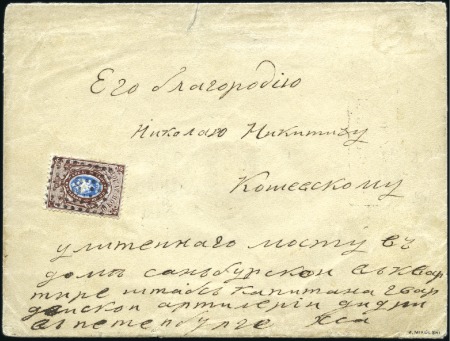 Его благородію
Николаю Никитичу
Кошевскому
у литеннаго мосту въ
доми санбурской въ квар
тире штабсъ капитана гвар
дейской артилеріи
въ петербурге